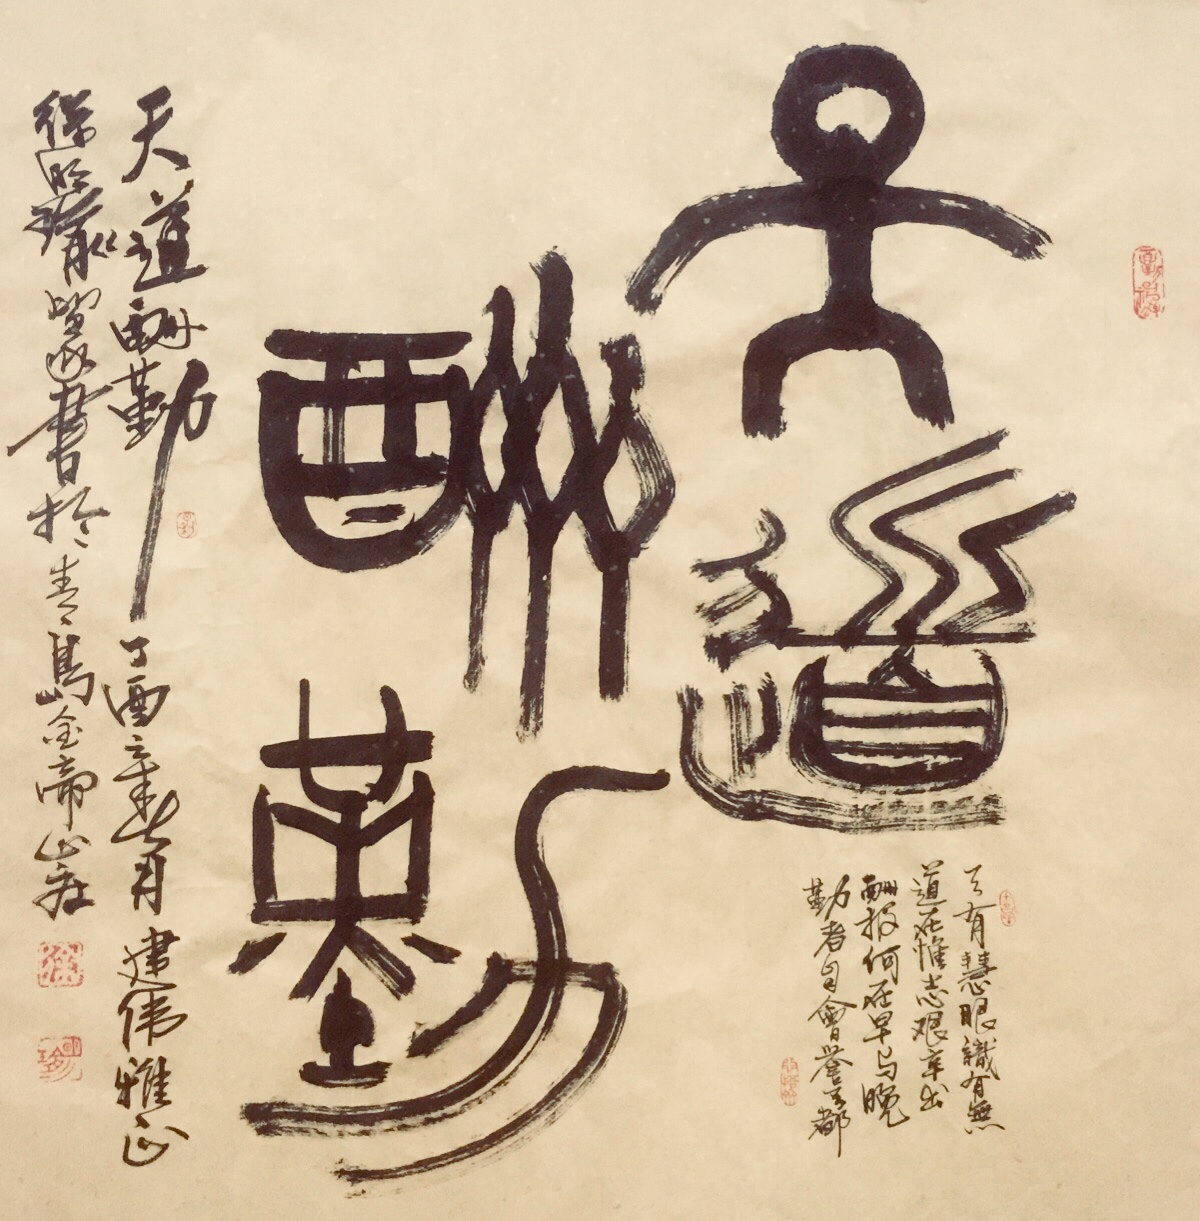 天道
酬勤
天有慧眼識有無
道在惟志艰辛出
酬报何在早与晚
勤者自會譽天都
天道酬勤 丁酉年七月 建伟雅正
書於青島金帝山庄